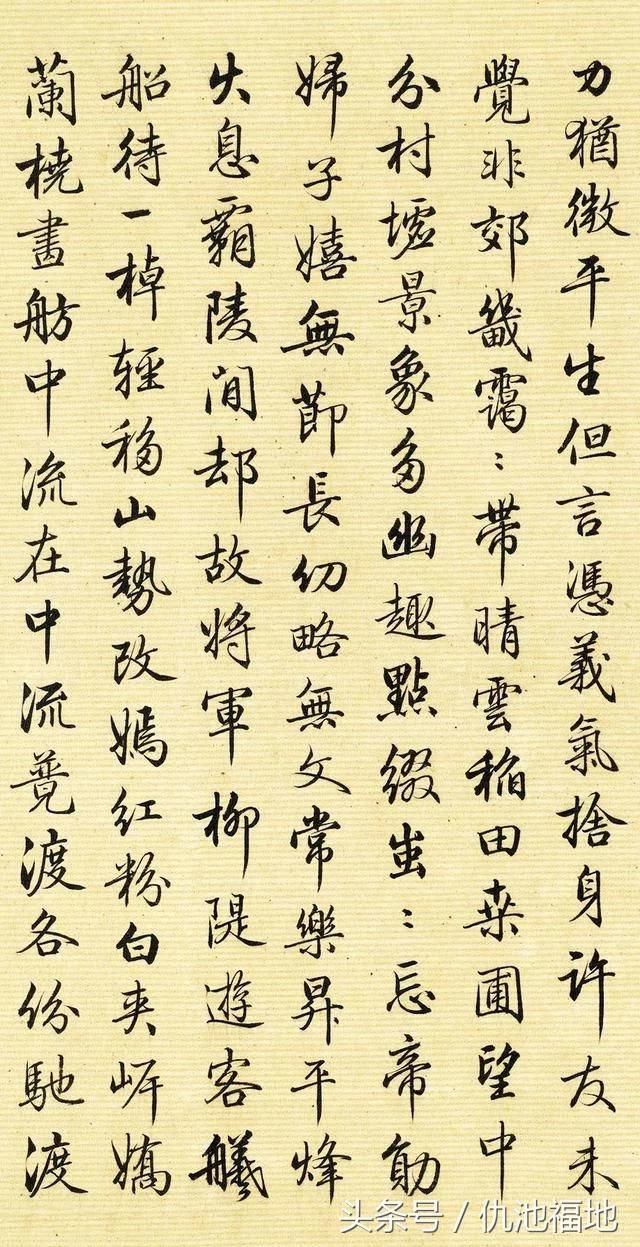 力猶微平生但言憑義氣捨身許友未
覺非郊畿靄〻帶晴雲稻田桒圃望中
分村墟景象多幽趣點缀蚩〻忘帝勛
婦子嬉無節長幼略無文常樂昇平烽
火息霸陵閒却故將軍柳隄遊客艤
船待一棹輕移山勢改嫣红粉白夾岍嬌
蘭橈畫舫中流在中流渡各份馳渡
头条号 / 仇池福地